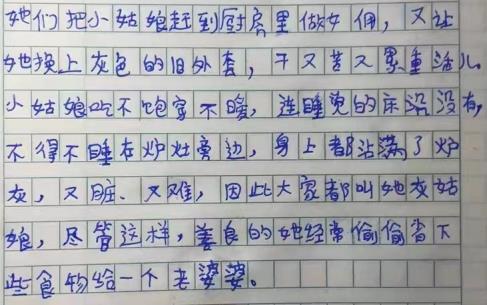 她们把小姑娘赶到厨房里做女佣，又让
她换上灰色的旧外套，干又苦又累重活儿。
小姑娘吃不饱穿不暖，连睡觉的床沿没有，
不得不睡在炉灶旁边，身上都沾满了炉
灰，又脏、又难，因此大家都叫她灰姑
娘，尽管这样，善良的她经常偷偷省下
些食物给一个老婆婆。